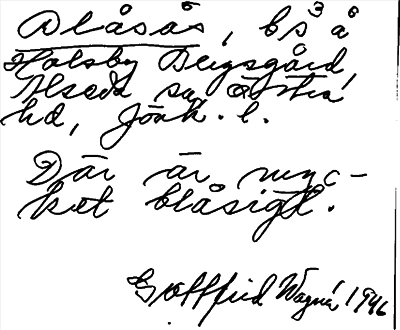 Blåsås, bs³ å⁶
Holsby Bergsgård,
Alseda sn, östra
hd, Jönk. l.
Där är myc-
ket blåsigt.
Gottfrid Wagnér 1946